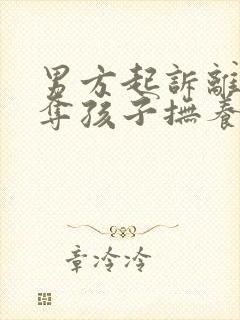 男方起訴離
奪孩子撫養
章冷冷